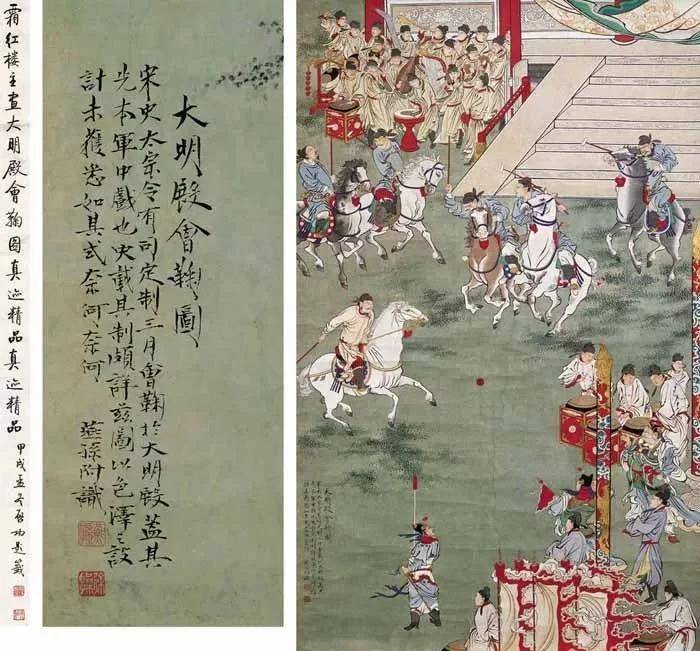 霜红楼主畫大明殿會鞠圖真迹精品真迹精品
甲戌孟冬啓功題籤
大明殿會鞠圖
宋史太宗令有司定制三月會鞠於大明殿蓋其
先本軍中戲也史載其制頗詳茲圖以色澤之設
計未獲悉如其式奈何奈何 燕孫附識